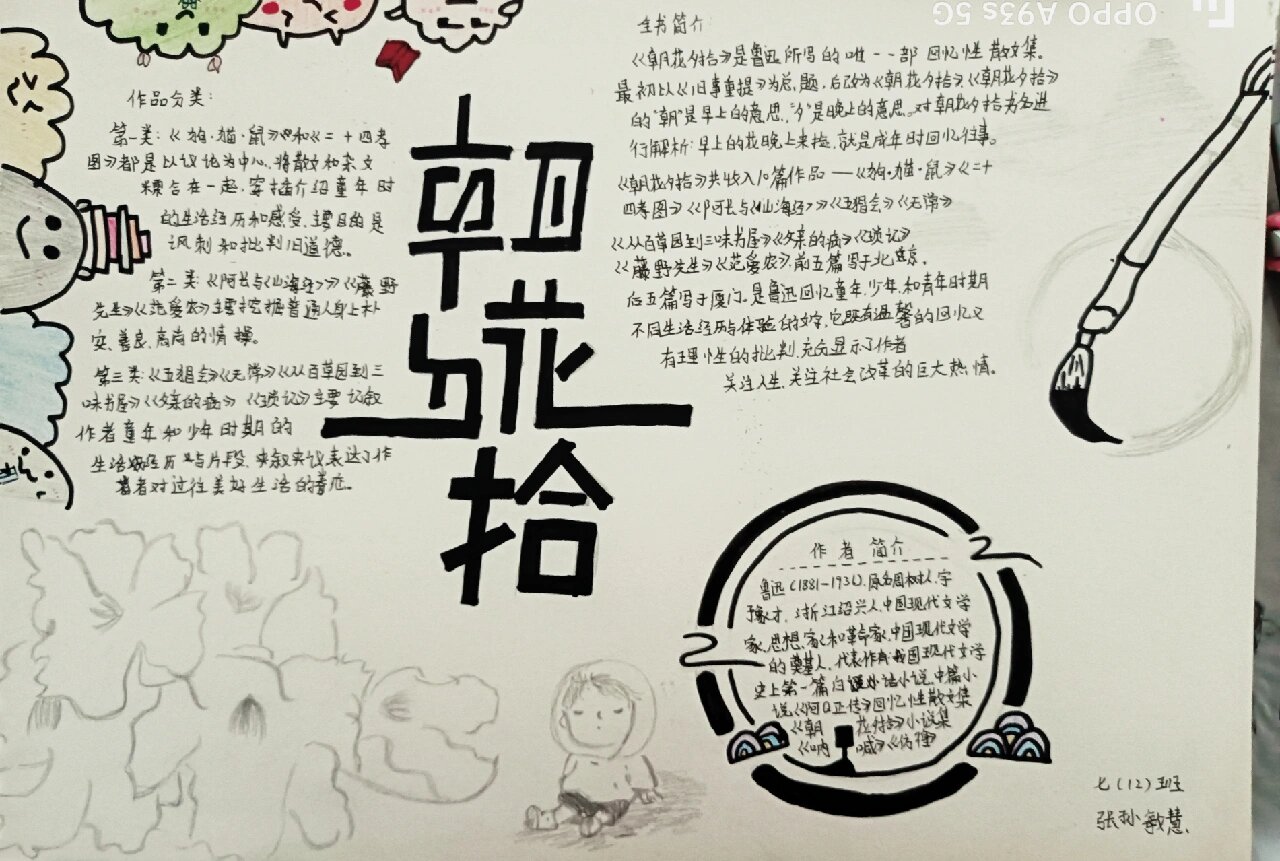 OPPO A93s 5G
作品分类:
第一类:《狗·猫·鼠》和《二十四孝
图》都是以议论为中心,将散文和杂文
糅合在一起,穿插介绍童年时
的生活经历和感受,主要目的是
讽刺和批判旧道德。
第二类:《阿长与《山海经》》《藤野
先生》《范爱农》主要挖掘普通人身上朴
实、善良、高尚的情操。
第三类:《五猖会》《无常》《从百草园到三
味书屋》《父亲的病》《琐记》主要记叙
作者童年和少年时期的
生活经历与片段,夹叙夹议表达了作
者对过往美好生活的眷恋。
朝花夕拾
全书简介
《朝花夕拾》是鲁迅所写的唯一一部回忆性散文集。
最初以《旧事重提》为总题,后改为《朝花夕拾》,《朝花夕拾》
的“朝”是早上的意思,“夕”是晚上的意思。对朝花夕拾书名进
行解析:早上的花晚上来捡,就是成年时回忆往事。
《朝花夕拾》共收入10篇作品——《狗·猫·鼠》《二十
四孝图》《阿长与《山海经》》《五猖会》《无常》
《从百草园到三味书屋》《父亲的病》《琐记》
《藤野先生》《范爱农》前五篇写于北京。
后五篇写于厦门,是鲁迅回忆童年、少年、和青年时期
不同生活经历与体验的文字,它既有温馨的回忆又
有理性的批判,充分显示了作者
关注人生,关注社会改革的巨大热情。
作者简介
鲁迅(1881-1936),原名周树人,字
豫才,浙江绍兴人,中国现代文学
家,思想家和革命家,中国现代文学
的奠基人,代表作有:我国现代文学
史上第一篇白话小说,中篇小
说《阿Q正传》回忆性散文集
《朝花夕拾》小说集
《呐喊》《彷徨》
七(12)班
张孙敏慧